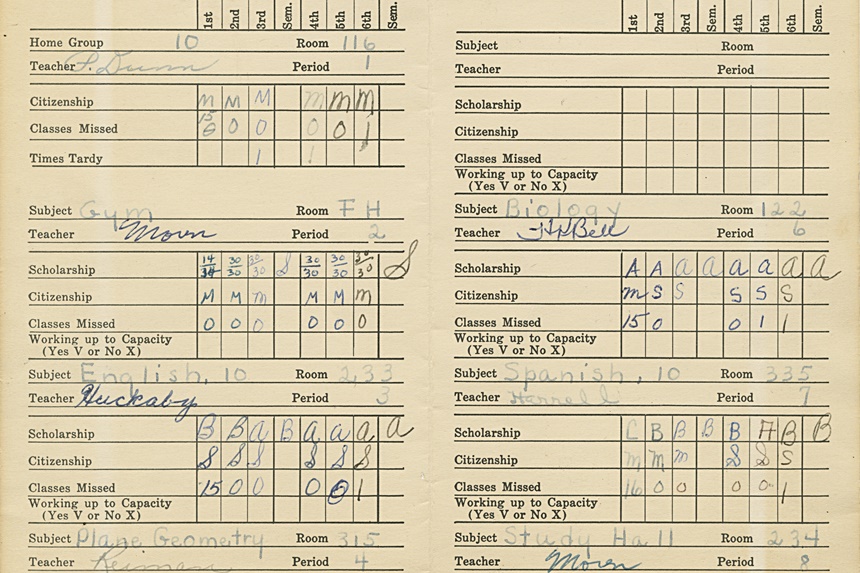 1st 2nd 3rd Sem. 4th 5th 6th Sem.
Home Group 10 Room 116
Teacher F. Dunn Period 1
Citizenship M M M M M M
Classes Missed 15 0 0 0 0 1
Times Tardy 1 1
Subject Gym Room FH
Teacher Period 2
Scholarship 14/14 30/30 30/30 S 30/30 30/30 30/30 S
Citizenship M M M M M M
Classes Missed 0 0 0 0 0 0
Working up to Capacity
(Yes V or No X)
Subject English, 10 Room 233
Teacher Huckaby Period 3
Scholarship B B a B a a a a
Citizenship S S S S S S
Classes Missed 15 0 0 0 0 1
Working up to Capacity
(Yes V or No X)
Subject Plane Geometry Room 315
Teacher Reiman Period 4
1st 2nd 3rd Sem. 4th 5th 6th Sem.
Subject Room
Teacher Period
Scholarship
Citizenship
Classes Missed
Working up to Capacity
(Yes V or No X)
Subject Biology Room 122
Teacher Bell Period 6
Scholarship A A a a a a a a
Citizenship m S S S S S
Classes Missed 15 0 0 1 1
Working up to Capacity
(Yes V or No X)
Subject Spanish, 10 Room 335
Teacher Harrell Period 7
Scholarship C B B B B A B B
Citizenship m m m S S S
Classes Missed 16 0 0 0 0 1
Working up to Capacity
(Yes V or No X)
Subject Study Hall Room 234
Teacher Period 8